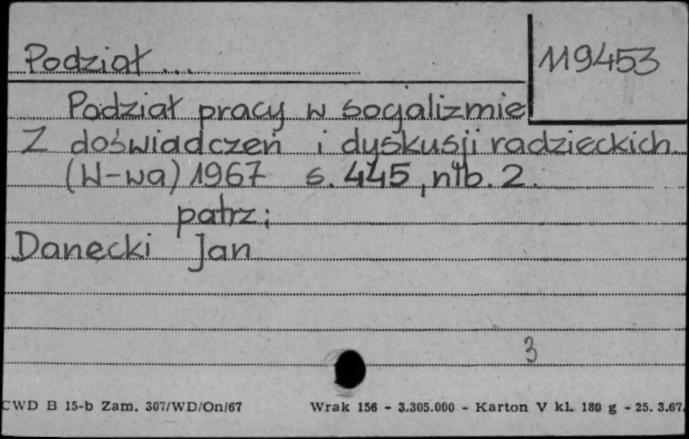 Podział ...
119453
Podział pracy w socjalizmie
Z doświadczeń i dyskusji radzieckich.
(W-wa) 1967 s. 445, ntb. 2.
patrz:
Danecki Jan
3
CWD B 15-b Zam. 307/WD/On/67 Wrak 156 - 3.305.000 - Karton V kl. 180 g - 25. 3.67.